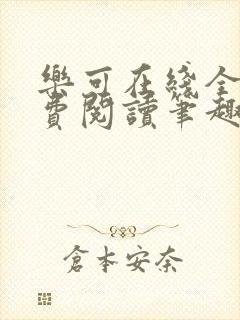 樂可在綫全
費閱讀筆趣
倉本安奈